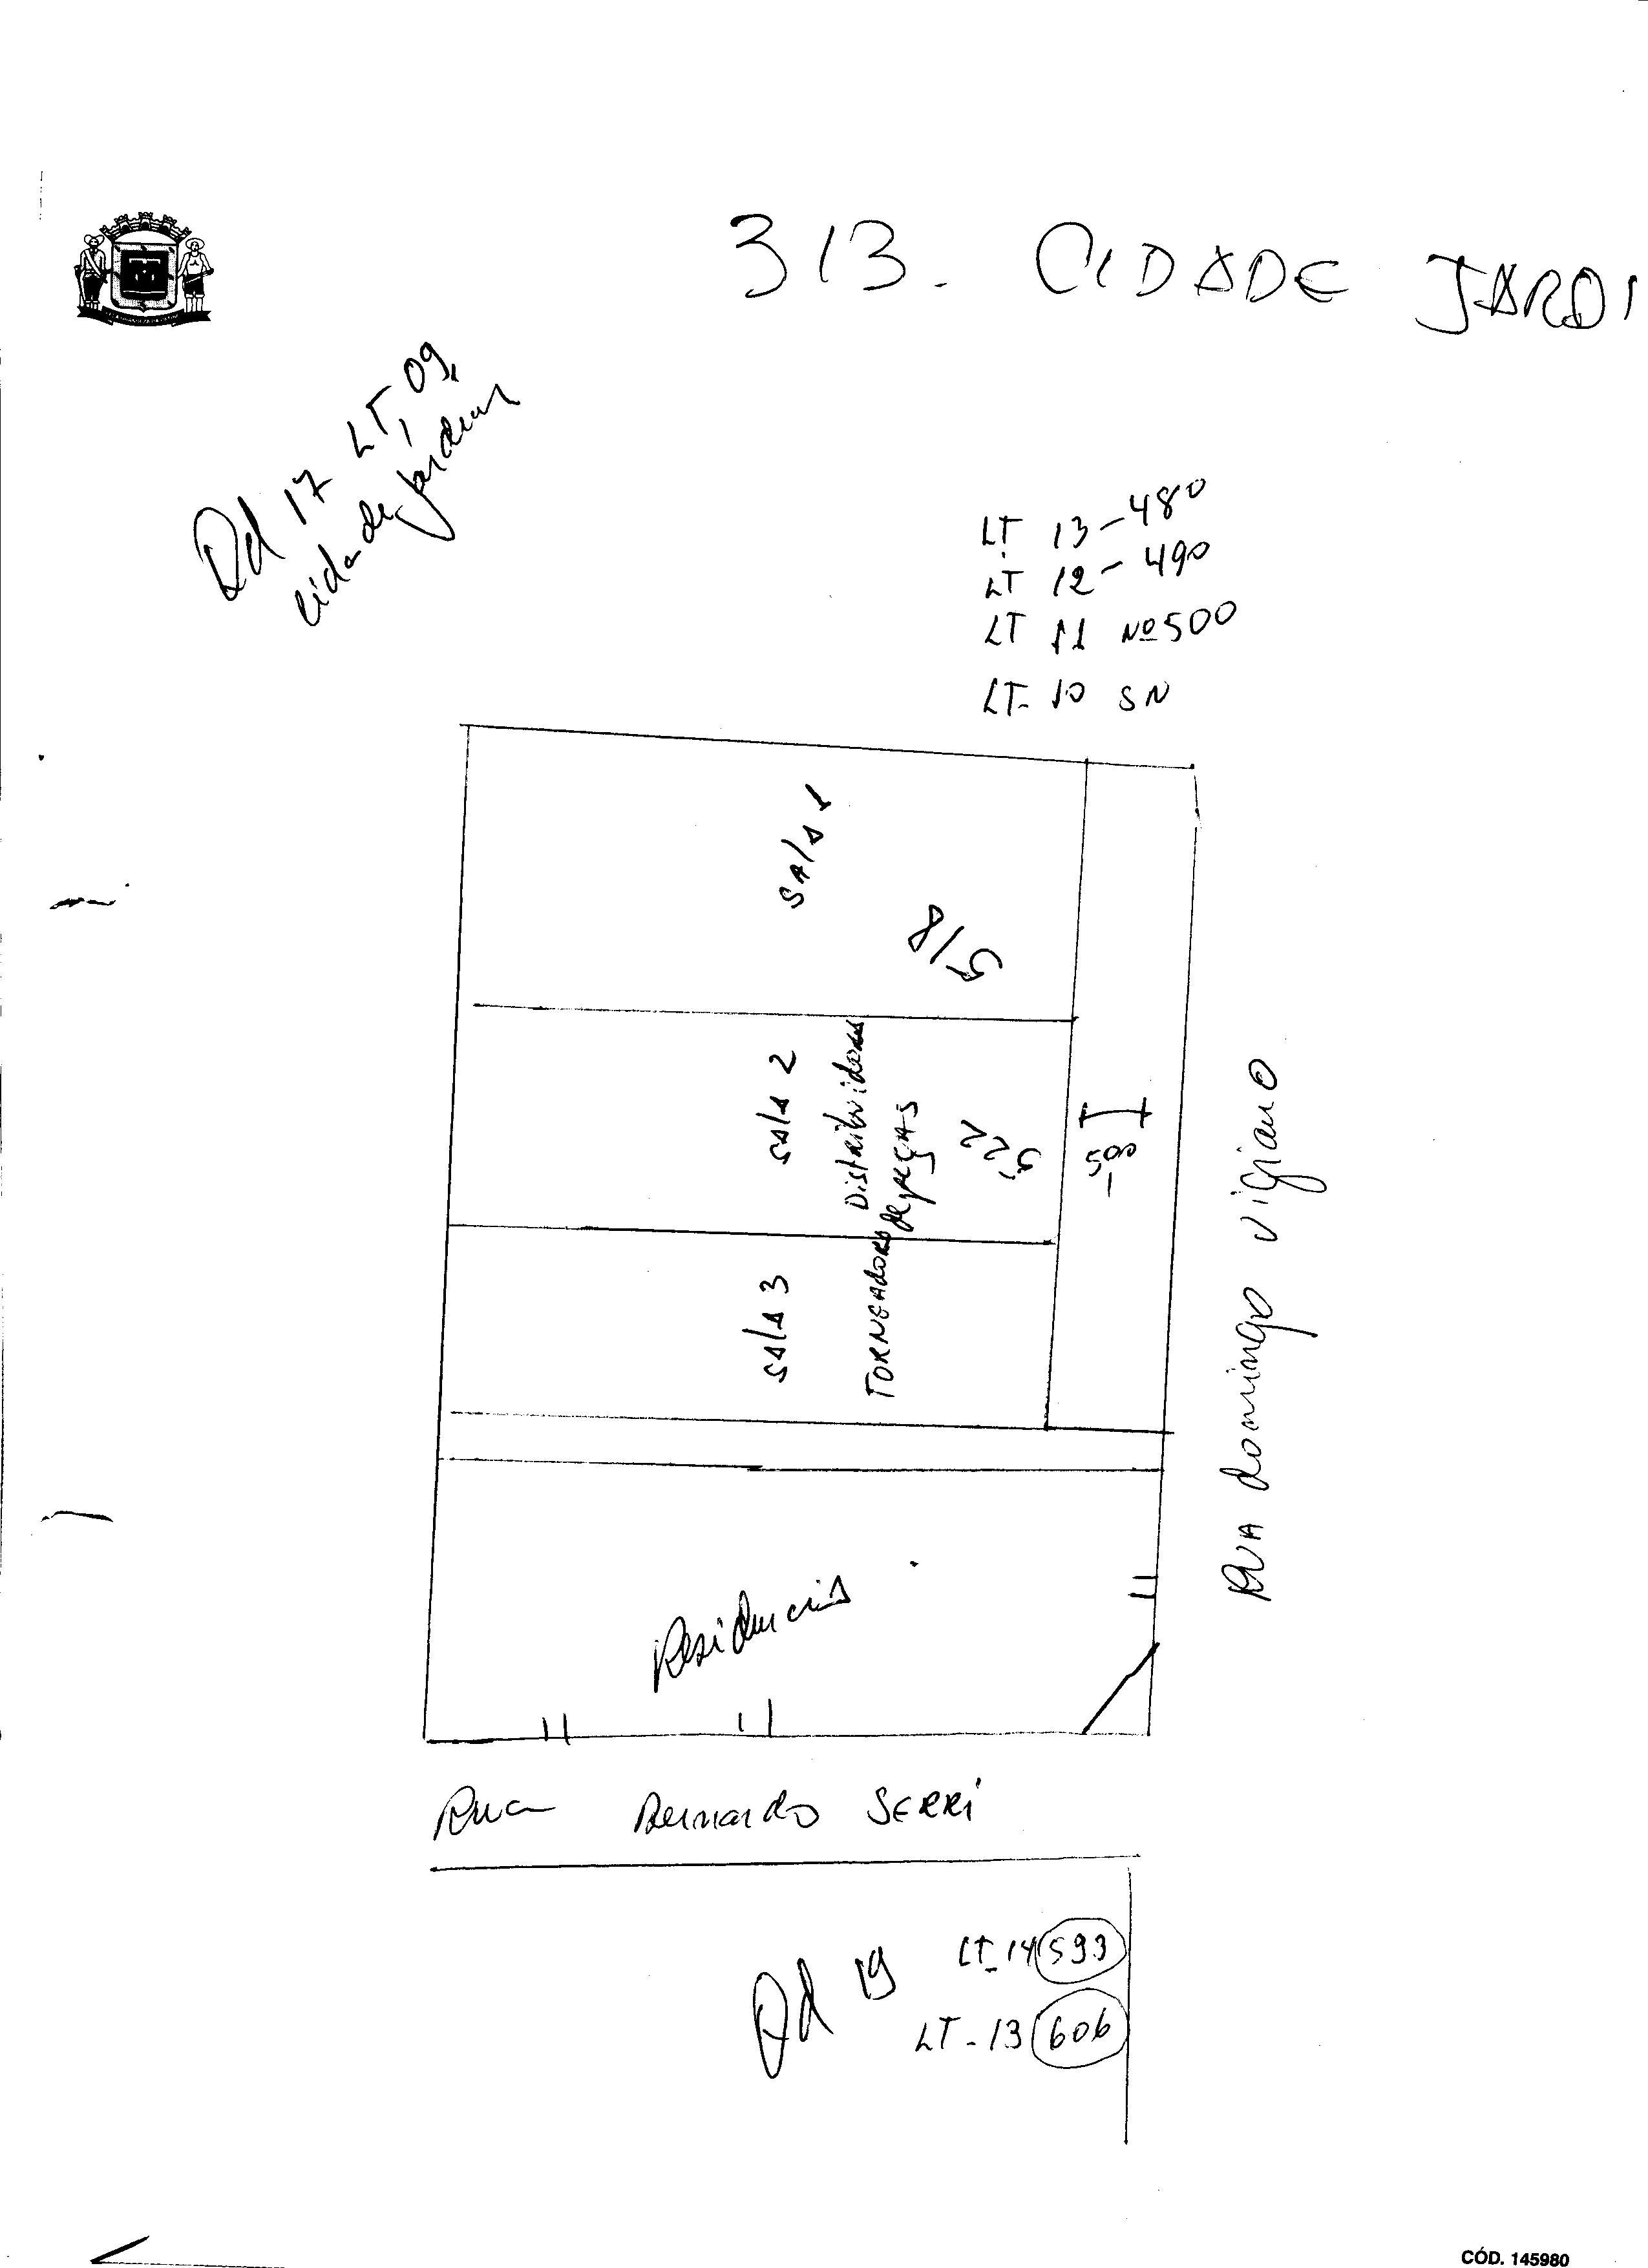 313. CIDADE JARDI
Qd 17 LT, 09,
cidade jardim
LT 13-480
LT 12-490
LT 11 Nº500
LT-10 SN
SALA 1
518
SALA 2
Distribuidora
de peças
522
500
SALA 3
TORNEADORA
RUA domingo vigiano
Residencia
Rua Bernardo SERRI
Qd 19
LT-14 593
LT-13 606
CÓD. 145980